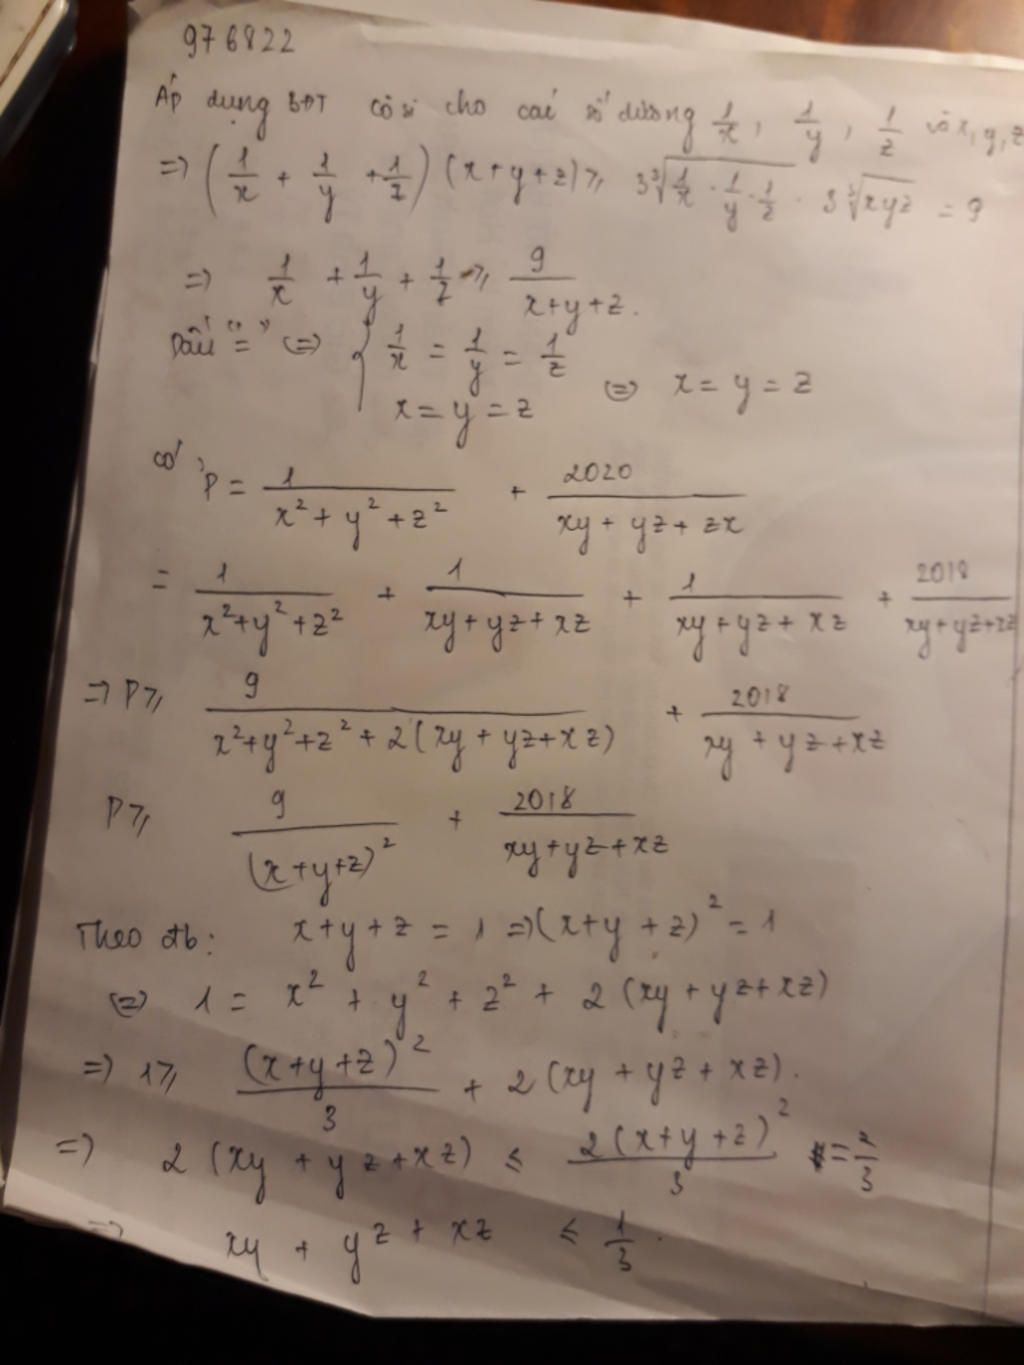 976822
Áp dụng BĐT cô si cho các số dương 1/x, 1/y, 1/z và x, y, z
=> (1/x + 1/y + 1/z)(x+y+z) ≥ 3∛(1/x · 1/y · 1/z) · 3∛(xyz) = 9
=> 1/x + 1/y + 1/z ≥ 9/(x+y+z).
Dấu "=" <=> { 1/x = 1/y = 1/z
x = y = z <=> x = y = z
có P = 1/(x² + y² + z²) + 2020/(xy + yz + zx)
= 1/(x²+y²+z²) + 1/(xy+yz+xz) + 1/(xy+yz+xz) + 2018/(xy+yz+xz)
=> P ≥ 9/(x²+y²+z²+2(xy+yz+xz)) + 2018/(xy+yz+xz)
P ≥ 9/(x+y+z)² + 2018/(xy+yz+xz)
Theo đb: x+y+z = 1 => (x+y+z)² = 1
<=> 1 = x² + y² + z² + 2(xy+yz+xz)
=> 1 ≥ (x+y+z)²/3 + 2(xy+yz+xz).
=> 2(xy+yz+xz) ≤ 2(x+y+z)²/3 = 2/3
=> xy + yz + xz ≤ 1/3.